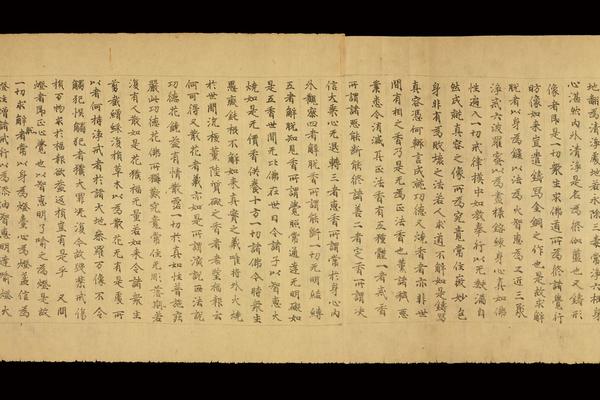 地翻為清淨處地若永除三毒常淨六根身
心湛然內外清淨是名為修伽藍也又鑄形
像者即是一切眾生求佛道所為修諸覺行
昉像如來豈遣鑄寫金銅之作也是故求解
脫者以身為鑪以法為火智惠為工近三聚
淨戒六波羅蜜以為畫樣鎔練身心真如佛
性遍入一切戒律模中如教奉行以无缺漏自
然成就真容之像所為究竟常住微妙色
身非有為敗壞之法若人求道不解如是鑄寫
真容憑何輙言成就功德又燒香者亦非世
間有相之香乃是无為正法香也薰諸穢惡
業悉令消滅其正法香有五種體一者戒香
所謂諸惡能斷能修諸善二者定香所謂決
信大乘心无退轉三者惠香所謂常於身心內
外觀察四者解脫香所謂能斷一切无明結縛
五者解脫知見香所謂覺照常通達无明礙如
是五香世間无比佛在世日令諸子以智惠火
燒如是无價香供養十方一切諸佛令時眾生
愚癡鈍根不解如來真實之義唯將外火燒
於世間沉檀薰陸質礙之香者希望福報云
何可得又散花者義亦如是所謂演說正法說
功德花饒益有情散霑一切於真如性普施莊
嚴此功德花佛所稱歎究竟常住无彫落期若
復有人散如是花獲福无量若如來令諸眾生
剪截繒綵傷損草木以為散花无有是處所
以者何持淨戒者於諸大地參羅万像不令
觸犯悞觸犯者獲大罪況復今故毀禁戒傷
損万物求於福報欲益返損豈有是乎 又問
燈者即正心覺也以智惠明了喻之為燈是故
一切求解者常以身為燈臺心為燈盞信為
燈炷增諸戒行以為添油智惠明達喻燈火